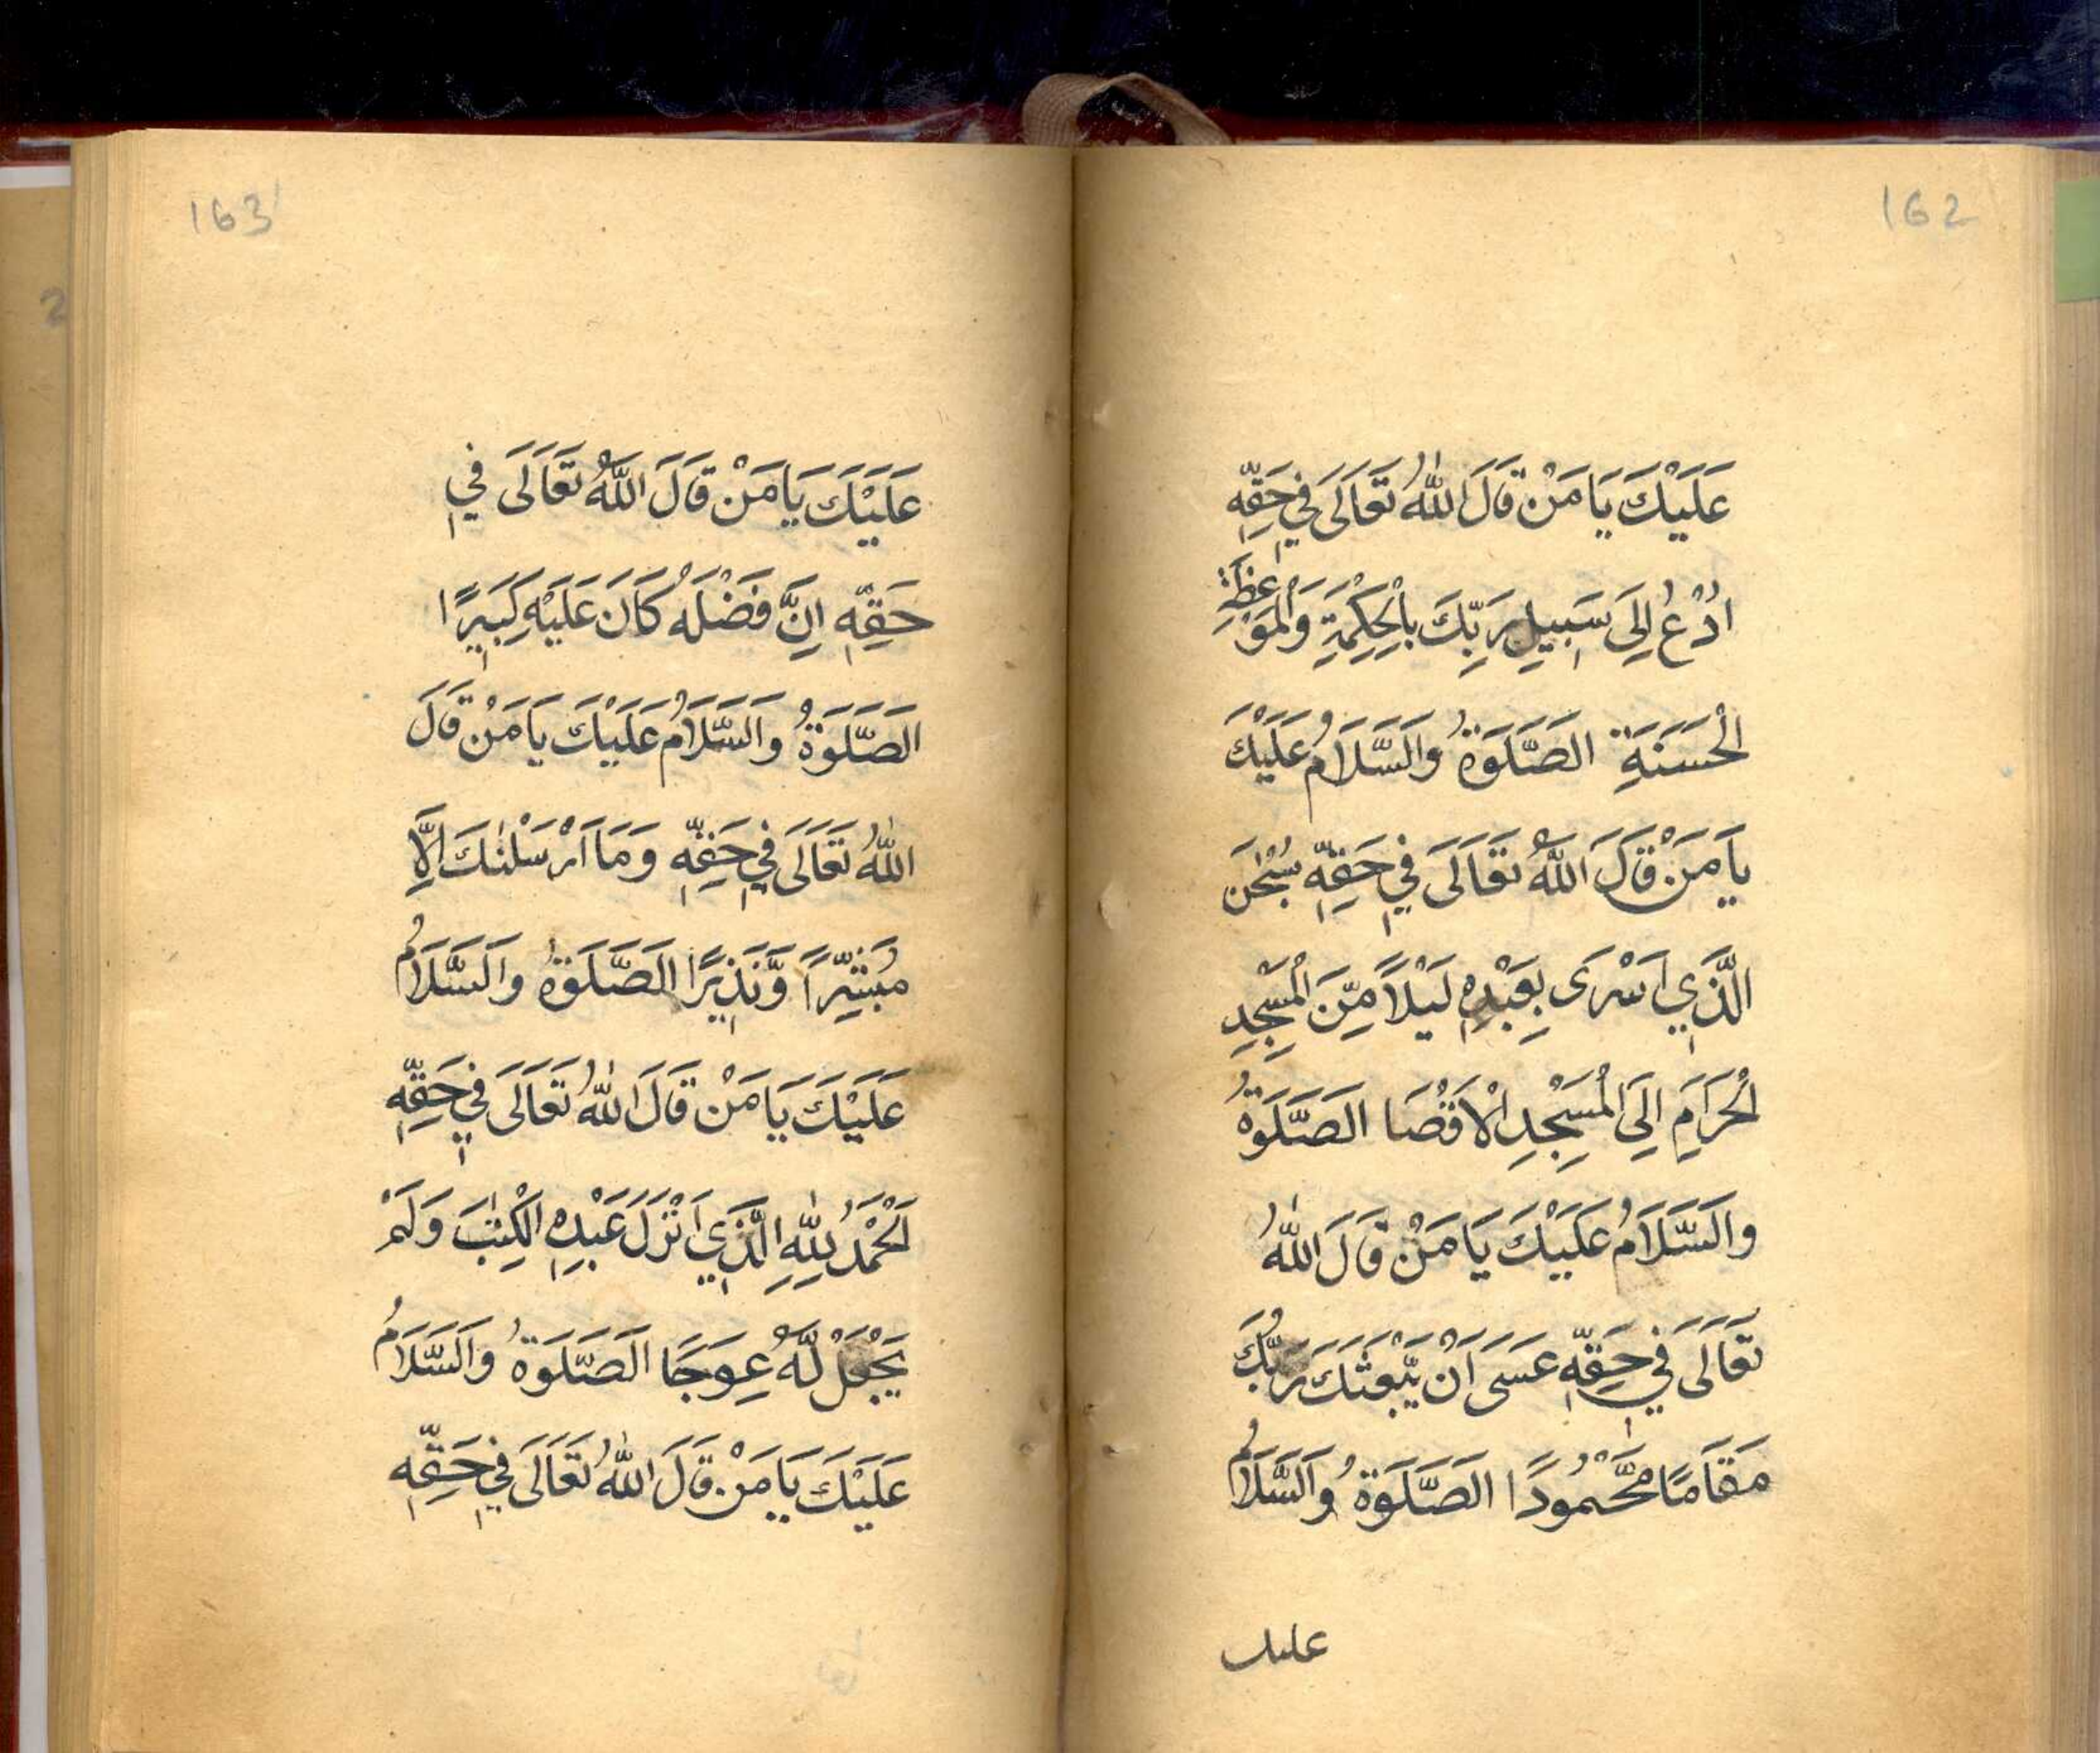 162
عَلَيْكَ يَا مَنْ قَالَ اللّٰهُ تَعَالَى فِي حَقِّهِ
اُدْعُ اِلَى سَبِيلِ رَبِّكَ بِالْحِكْمَةِ وَالْمَوْعِظَةِ
الْحَسَنَةِ الصَّلَوةُ وَالسَّلَامُ عَلَيْكَ
يَا مَنْ قَالَ اللّٰهُ تَعَالَى فِي حَقِّهِ سُبْحٰنَ
الَّذِي اَسْرَى بِعَبْدِهِ لَيْلًا مِّنَ الْمَسْجِدِ
الْحَرَامِ اِلَى الْمَسْجِدِ الْاَقْصَا الصَّلَوةُ
وَالسَّلَامُ عَلَيْكَ يَا مَنْ قَالَ اللّٰهُ
تَعَالَى فِي حَقِّهِ عَسَى اَنْ يَّبْعَثَكَ رَبُّكَ
مَقَامًا مَّحْمُودًا الصَّلَوةُ وَالسَّلَامُ
عليك
163
عَلَيْكَ يَا مَنْ قَالَ اللّٰهُ تَعَالَى فِي
حَقِّهِ اِنَّ فَضْلَهُ كَانَ عَلَيْهِ كَبِيرًا
الصَّلَوةُ وَالسَّلَامُ عَلَيْكَ يَا مَنْ قَالَ
اللّٰهُ تَعَالَى فِي حَقِّهِ وَمَا اَرْسَلْنٰكَ اِلَّا
مُبَشِّرًا وَّنَذِيرًا الصَّلَوةُ وَالسَّلَامُ
عَلَيْكَ يَا مَنْ قَالَ اللّٰهُ تَعَالَى فِي حَقِّهِ
اَلْحَمْدُ لِلّٰهِ الَّذِي اَنْزَلَ عَبْدِهِ الْكِتٰبَ وَلَمْ
يَجْعَلْ لَّهُ عِوَجًا الصَّلَوةُ وَالسَّلَامُ
عَلَيْكَ يَا مَنْ قَالَ اللّٰهُ تَعَالَى فِي حَقِّهِ